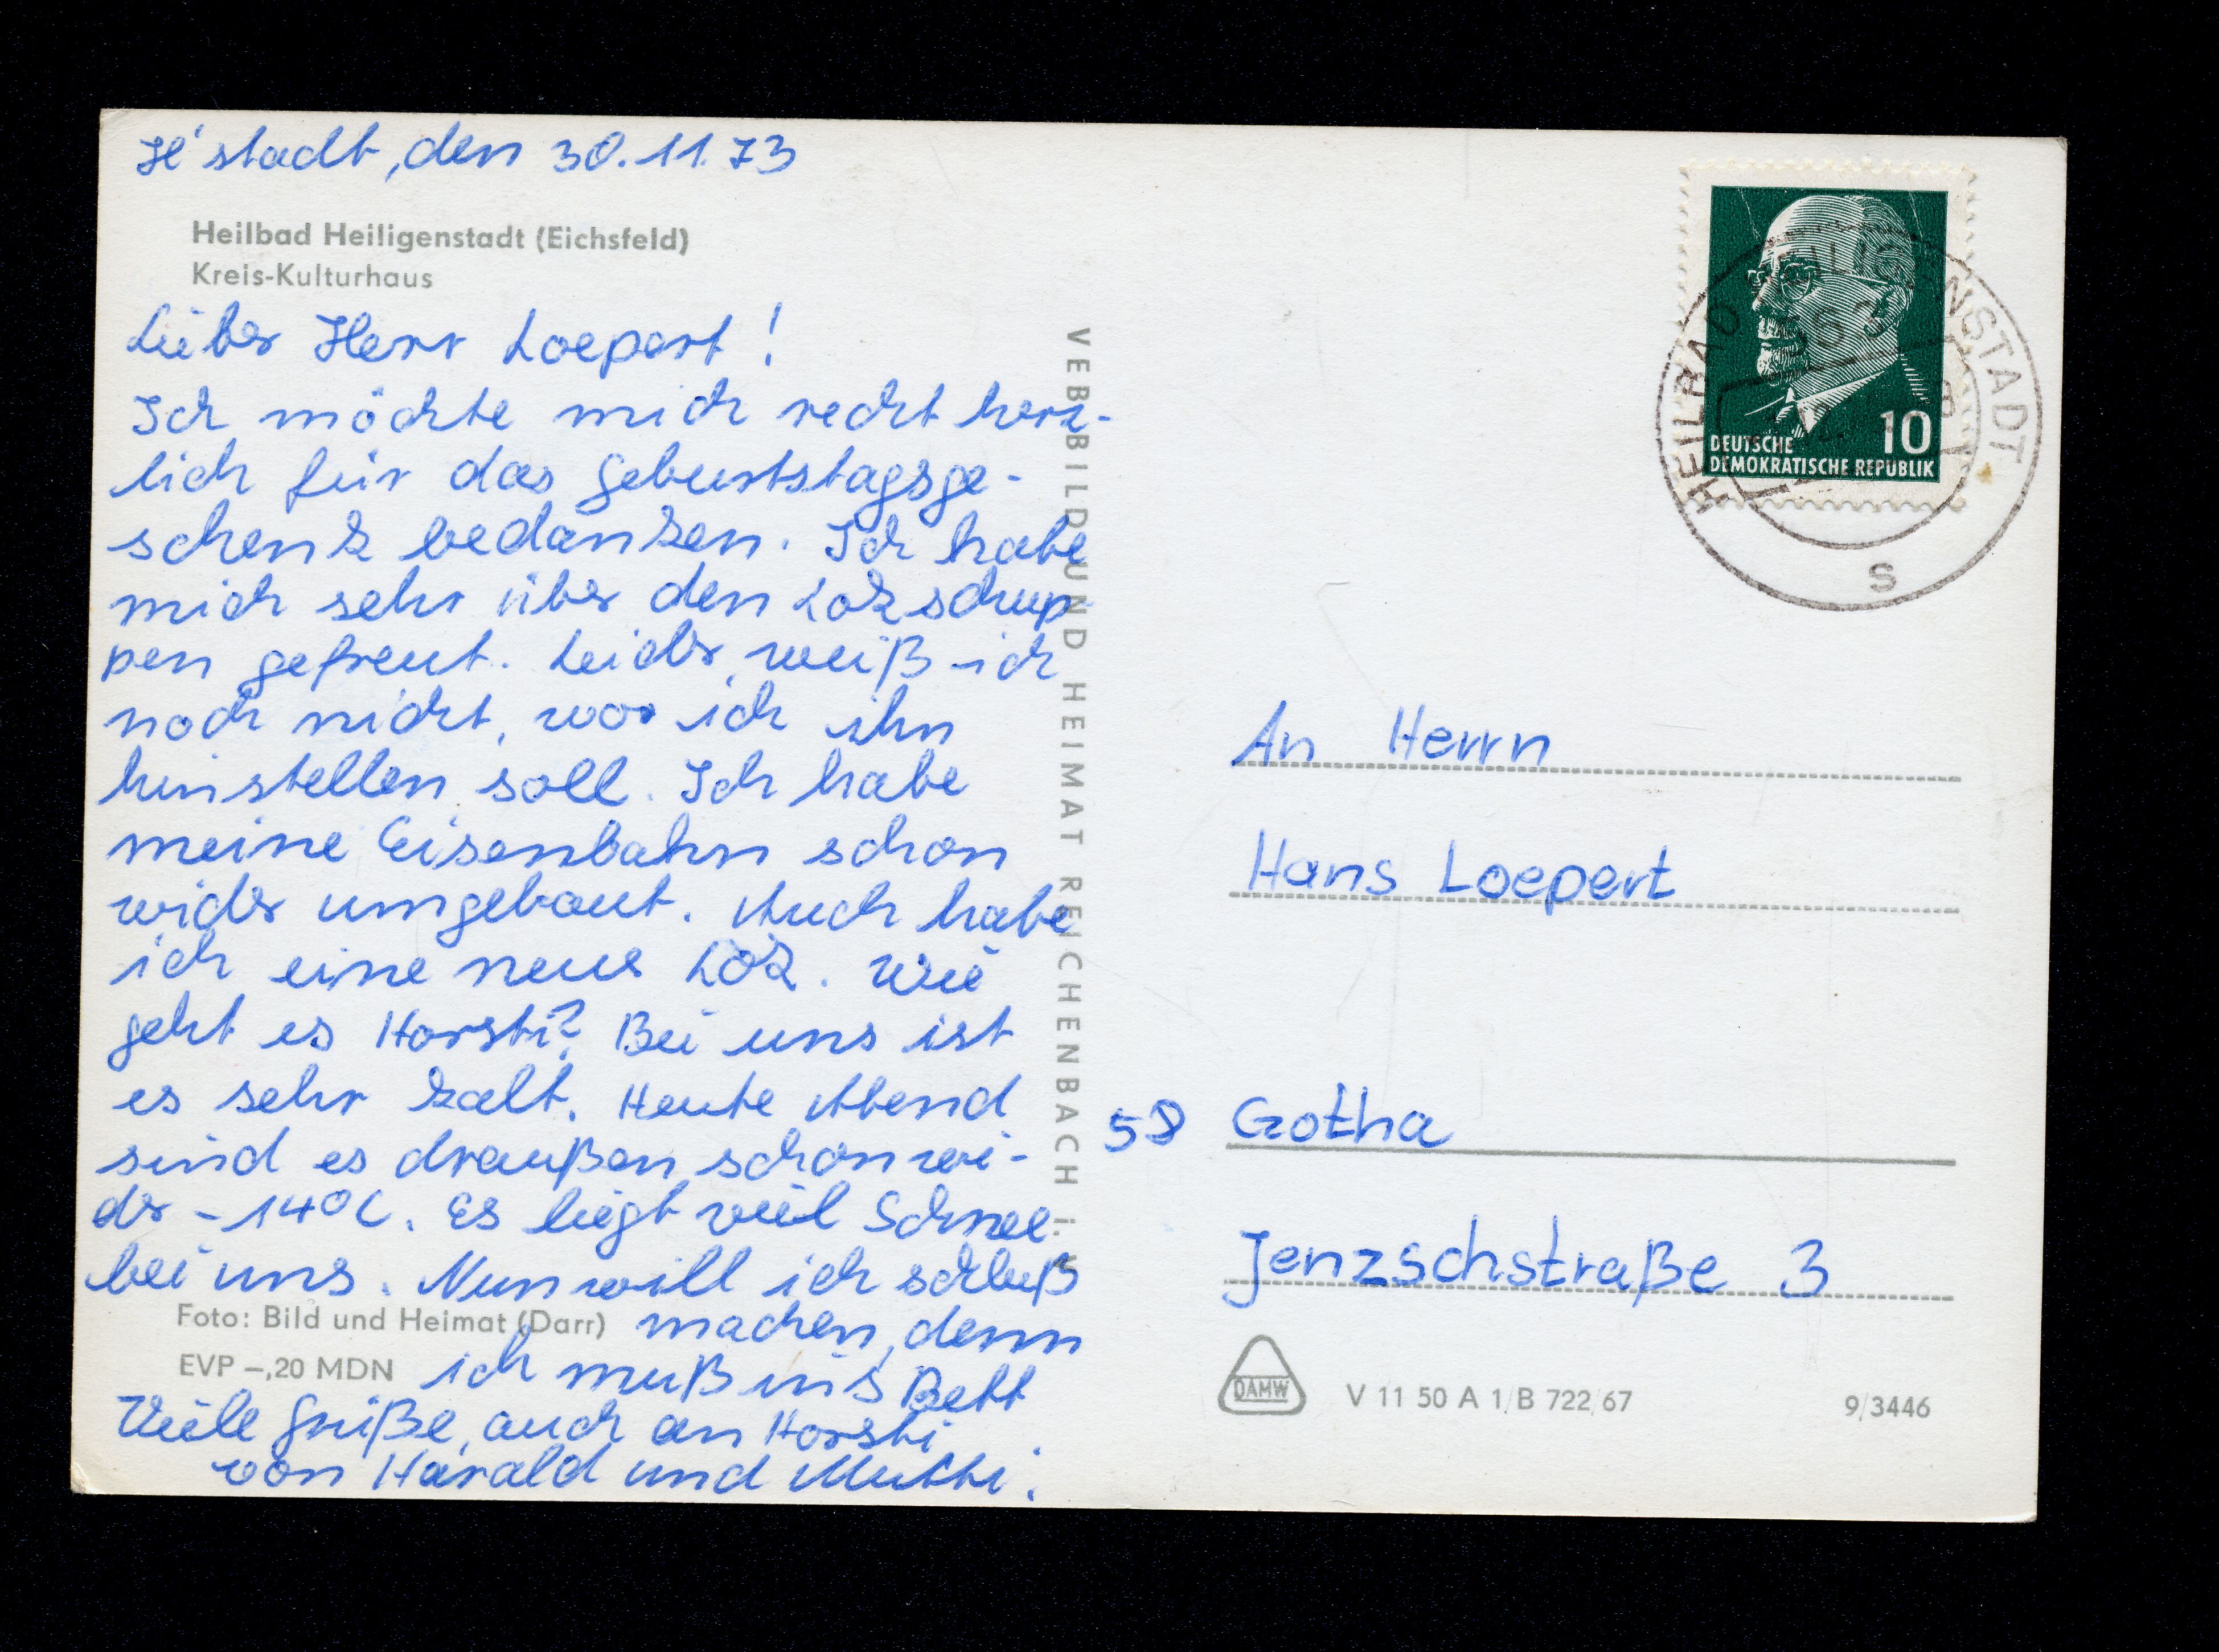 H'stadt, den 30.11.73
Heilbad Heiligenstadt (Eichsfeld)
Kreis-Kulturhaus
Lieber Herr Loepert!
Ich möchte mich recht herz-
lich für das Geburtstagsge-
schenk bedanken. Ich habe
mich sehr über den Lokschup-
pen gefreut. Leider weiß ich
noch nicht, wo ich ihn
hinstellen soll. Ich habe
meine Eisenbahn schon
wider umgebaut. Auch habe
ich eine neue Lok. Wie
geht es Horsti? Bei uns ist
es sehr kalt. Heute Abend
sind es draußen schon wi-
der -14°C. Es liegt viel Schnee
bei uns. Nun will ich schluß
Foto: Bild und Heimat (Darr) machen, denn
EVP –,20 MDN ich muß ins Bett
Viele Grüße, auch an Horsti
von Harald und Mutti.
VEB BILD UND HEIMAT REICHENBACH i. V.
DEUTSCHE
DEMOKRATISCHE REPUBLIK
10
HEILBAD HEILIGENSTADT
563
s
An Herrn
Hans Loepert
58 Gotha
Jenzschstraße 3
DAMW V 11 50 A 1/B 722/67 9/3446